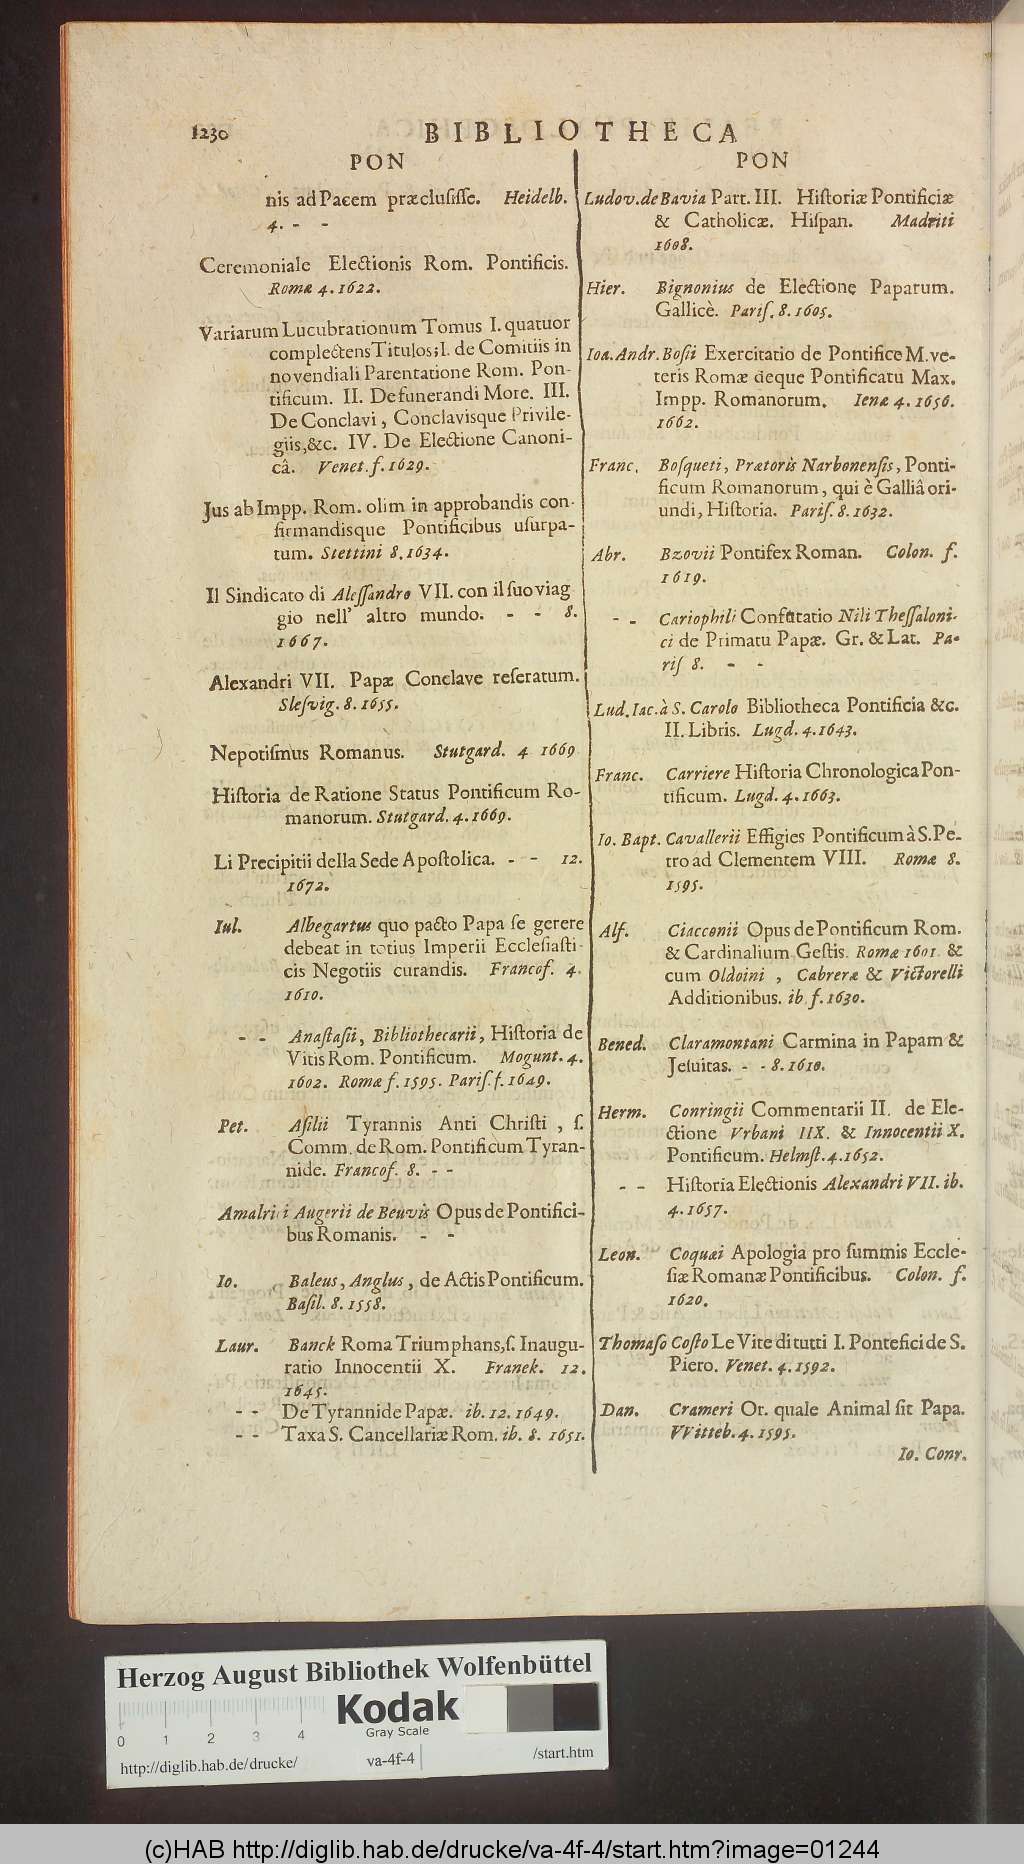 1230
BIBLIOTHECA
PON
nis ad Pacem præcluſiſſe. Heidelb.
4. - -
Ceremoniale Electionis Rom. Pontificis.
Romæ 4. 1622.
Variarum Lucubrationum Tomus I. quatuor
complectens Titulos; I. de Comitiis in
novendiali Parentatione Rom. Pon-
tificum. II. De funerandi More. III.
De Conclavi, Conclavisque Privile-
giis, &c. IV. De Electione Canoni-
câ. Venet. f. 1629.
Jus ab Impp. Rom. olim in approbandis con-
firmandisque Pontificibus uſurpa-
tum. Stettini 8. 1634.
Il Sindicato di Aleſſandro VII. con il ſuo viag
gio nell' altro mundo. - - 8.
1667.
Alexandri VII. Papæ Conclave reſeratum.
Sleſvig. 8. 1655.
Nepotiſmus Romanus. Stutgard. 4 1669
Hiſtoria de Ratione Status Pontificum Ro-
manorum. Stutgard. 4. 1669.
Li Precipitii della Sede Apoſtolica. - - 12.
1672.
Iul. Albegartus quo pacto Papa ſe gerere
debeat in totius Imperii Eccleſiaſti-
cis Negotiis curandis. Francof. 4.
1610.
- - Anaſtaſii, Bibliothecarii, Hiſtoria de
Vitis Rom. Pontificum. Mogunt. 4.
1602. Romæ f. 1595. Pariſ. f. 1649.
Pet. Aſilii Tyrannis Anti Chriſti, ſ.
Comm. de Rom. Pontificum Tyran-
nide. Francof. 8. - -
Amalrici Augerii de Beuvis Opus de Pontifici-
bus Romanis. - -
Io. Baleus, Anglus, de Actis Pontificum.
Baſil. 8. 1558.
Laur. Banck Roma Triumphans, ſ. Inaugu-
ratio Innocentii X. Franek. 12.
1645.
- - De Tyrannide Papæ. ib. 12. 1649.
- - Taxa S. Cancellariæ Rom. ib. 8. 1651.
PON
Ludov. de Bavia Part. III. Hiſtoriæ Pontificiæ
& Catholicæ. Hiſpan. Madriti
1608.
Hier. Bignonius de Electione Paparum.
Gallicè. Pariſ. 8. 1605.
Ioa. Andr. Boſii Exercitatio de Pontifice M. ve-
teris Romæ deque Pontificatu Max.
Impp. Romanorum. Ienæ 4. 1656.
1662.
Franc. Boſqueti, Prætoris Narbonenſis, Ponti-
ficum Romanorum, qui è Galliâ ori-
undi, Hiſtoria. Pariſ. 8. 1632.
Abr. Bzovii Pontifex Roman. Colon. f.
1619.
- - Cariophili Confutatio Nili Theſſaloni-
ci de Primatu Papæ. Gr. & Lat. Pa-
riſ 8. - -
Lud. Iac. à S. Carolo Bibliotheca Pontificia &c.
II. Libris. Lugd. 4. 1643.
Franc. Carriere Hiſtoria Chronologica Pon-
tificum. Lugd. 4. 1663.
Io. Bapt. Cavallerii Effigies Pontificum à S. Pe-
tro ad Clementem VIII. Romæ 8.
1595.
Alf. Ciacconii Opus de Pontificum Rom.
& Cardinalium Geſtis. Romæ 1601. &
cum Oldoini, Cabreræ & Victorelli
Additionibus. ib f. 1630.
Bened. Claramontani Carmina in Papam &
Jeſuitas. - - 8. 1610.
Herm. Conringii Commentarii II. de Ele-
ctione Vrbani IIX. & Innocentii X.
Pontificum. Helmſt. 4. 1652.
- - Hiſtoria Electionis Alexandri VII. ib.
4. 1657.
Leon. Coquæi Apologia pro ſummis Eccle-
ſiæ Romanæ Pontificibus. Colon. f.
1620.
Thomaſo Coſto Le Vite di tutti I. Pontefici de S.
Piero. Venet. 4. 1592.
Dan. Crameri Or. quale Animal ſit Papa.
VVitteb. 4. 1595.
Io. Conr.
Herzog August Bibliothek Wolfenbüttel
Kodak
Gray Scale
0 1 2 3 4
http://diglib.hab.de/drucke/ va-4f-4 /start.htm
(c)HAB http://diglib.hab.de/drucke/va-4f-4/start.htm?image=01244